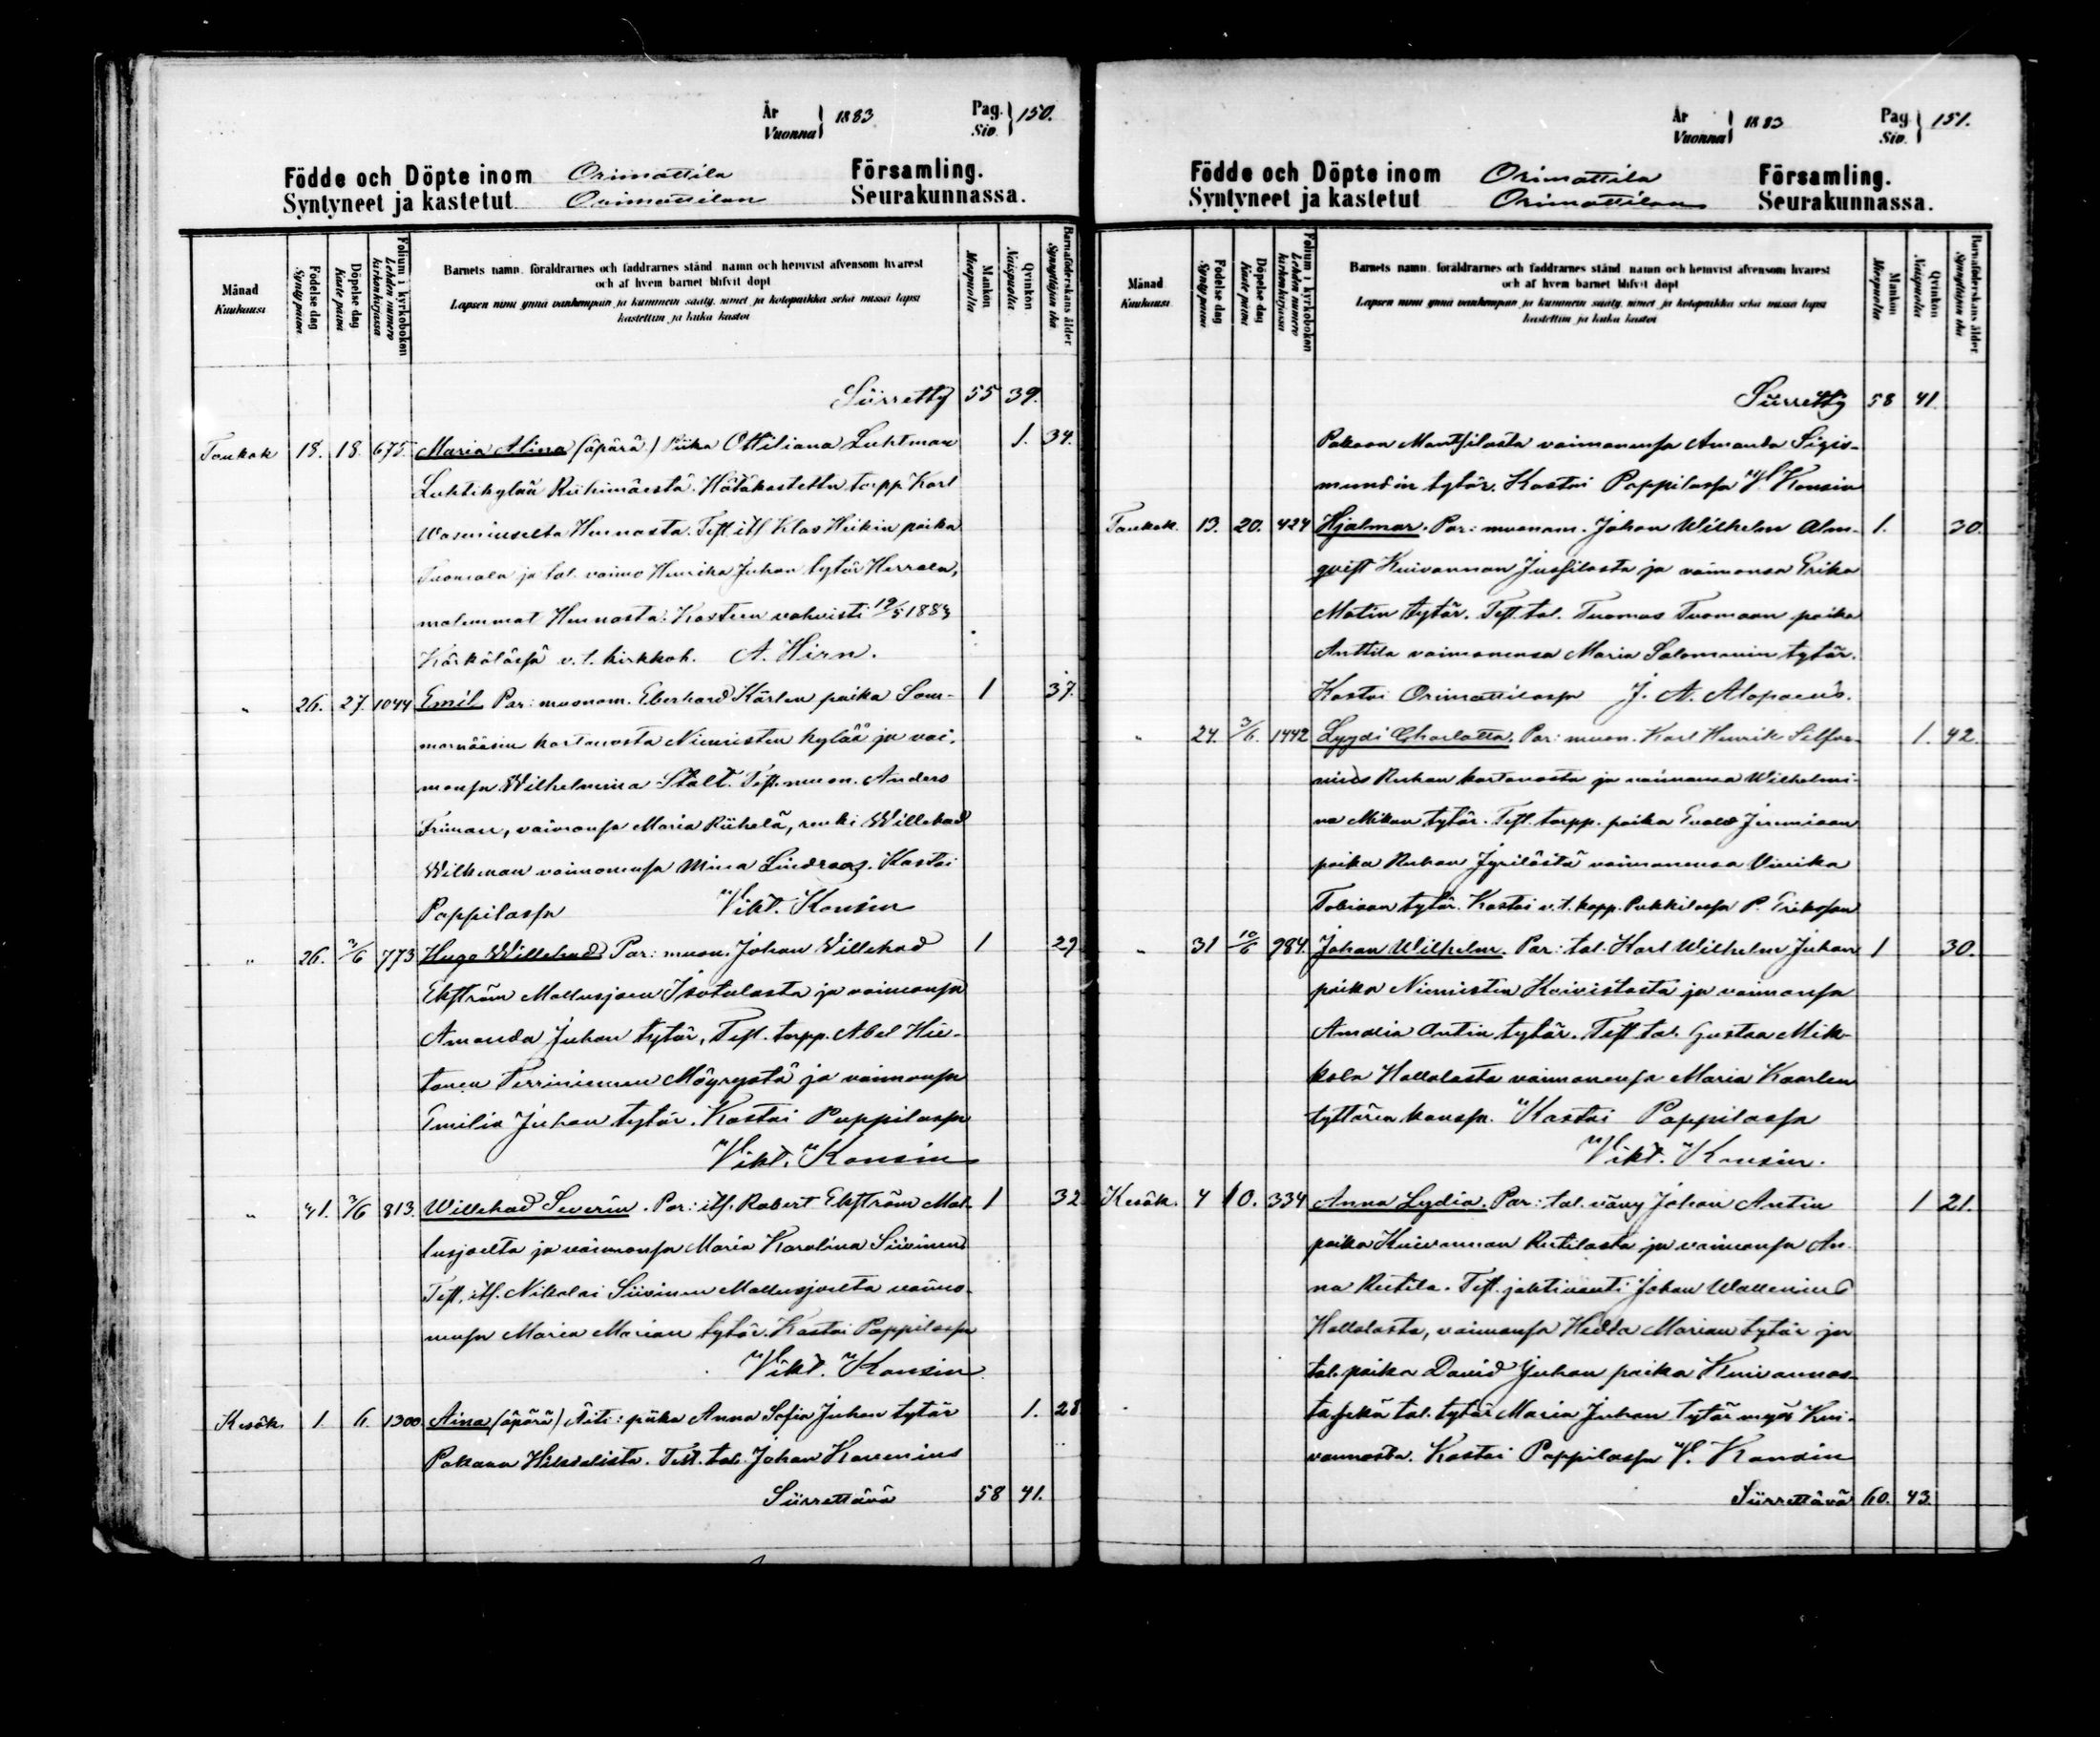 År
Vuonna } 1883
Pag.
Siv. } 150.
Födde och Döpte inom Orimattila Församling.
Syntyneet ja kastetut Orimattilan Seurakunnassa.
Månad
Kuukausi
Födelse dag
Synty päivä
Döpelse dag
Kaste päivä
Folium i kyrkoboken
Lehden numero kirkonkirjassa
Barnets namn, föräldrarnes och faddrarnes stånd, namn och hemvist äfvensom hvarest
och af hvem barnet blifvit döpt
Lapsen nimi ynnä vanhempain ja kummein sääty, nimet ja kotopaikka sekä missä lapsi
kastettiin ja kuka kastoi
Mankön
Miespuolta
Qvinkön
Naispuolta
Barnaföderskans ålder
Synnyttäjän ikä
Siirretty 55 39.
Toukok. 18. 18. 675. Maria Alina (äpärä) Piika Ottiliana Luhtman 1. 34.
Luhtikylän Riihimäestä. Hätäkastettu torpp. Karl
Waseniukselta Hennasta. Test. its. Klas Heikin poika
Tuomala ja tal. vaimo Henrika Juhan tytär Herrala,
molemmat Hennasta. Kasteen vahvisti 19/5 1883
Kärkölässä v. t. kirkkoh. A. Hirn.
„ 26. 27. 1044 Emil Par: muonam. Eberhard Kärlen poika Som- 1 37.
marnäsin kartanosta Niemisten kylää ja vai-
monsa Wilhelmina Stålt. Test. muon. Anders
Friman, vaimonsa Maria Riihelä, renki Willehad
Wilkman vaimonensa Mina Lindroos. Kastoi
Pappilassa Vikt. Konsin
„ 26. 3/6 773 Hugo Willehad. Par: muon. Johan Willehad 1 29
Ekström Mallusjoen Isotalosta ja vaimonsa
Amanda Juhan tytär, Test. torpp. Abel Hie-
tanen Terriniemen Mäyrystä ja vaimonsa
Emilia Juhan tytär. Kastoi Pappilassa
Vikt. Konsin
„ 31. 3/6 813. Willehad Severin. Par: its. Robert Ekström Mal- 1 32
lusjoelta ja vaimonsa Maria Karolina Siivinen
Test. its. Nikolai Siivinen Mallusjoelta vaimo-
nensa Maria Marian tytär. Kastoi Pappilassa
Vikt. Konsin
Kesäk. 1. 6. 1300. Aina (äpärä) Äiti: piika Anna Sofia Juhan tytär 1. 28
Pakaan Hildalista. Test. tal. Johan Kaxenius
Siirrettävä 58 41.
År
Vuonna } 1883
Pag.
Siv. } 151.
Födde och Döpte inom Orimattila Församling.
Syntyneet ja kastetut Orimattilan Seurakunnassa.
Månad
Kuukausi
Födelse dag
Synty päivä
Döpelse dag
Kaste päivä
Folium i kyrkoboken
Lehden numero kirkonkirjassa
Barnets namn, föräldrarnes och faddrarnes stånd, namn och hemvist äfvensom hvarest
och af hvem barnet blifvit döpt
Lapsen nimi ynnä vanhempain ja kummein sääty, nimet ja kotopaikka sekä missä lapsi
kastettiin ja kuka kastoi
Mankön
Miespuolta
Qvinkön
Naispuolta
Barnaföderskans ålder
Synnyttäjän ikä
Siirretty 58 41.
Pakaan Mantsilasta vaimonensa Amanda Sigis-
mundin tytär. Kastoi Pappilassa V. Konsin
Toukok. 13. 20. 424 Hjalmar. Par: muonam. Johan Wilhelm Alm- 1. 30.
qvist Kuivannan Jussilasta ja vaimonsa Erika
Matin tytär. Test. tal. Tuomas Tuomaan poika
Anttila vaimonensa Maria Salomonin tytär.
Kastoi Orimattilassa J. A. Alopaeus.
„ 24. 3/6. 1442 Lyydi Charlotta. Par: muon. Karl Henrik Silfve- 1. 42.
nius Ruhan kartanosta ja vaimonsa Wilhelmi-
na Mikon tytär. Test. torpp. poika Evald Jeremiaan
poika Ruhan Jyrilästä vaimonensa Ulriika
Tobiaan tytär. Kastoi v. t. kapp. Pukkilassa P. Erikson
„ 31 10/6 984. Johan Wilhelm. Par: tal. Karl Wilhelm Juhan 1 30.
poika Niemisten Koivistosta ja vaimonsa
Amalia Antin tytär. Test. tal. Gustaa Mik-
kola Hallolasta vaimonensa Maria Kaarlen
tyttären kanssa. Kastoi Pappilassa
Vikt. Konsin.
Kesäk. 4 10. 334 Anna Lydia. Par: tal. vävy Johan Antin 1 21.
poika Kuivannan Rutilasta ja vaimonsa An-
na Rutila. Test. jahtivouti Johan Wallenius
Hallolasta, vaimonsa Hedda Marian tytär ja
tal. poika David Juhan poika Kuivannas-
ta sekä tal. tytär Maria Juhan tytär myös Kui-
vannosta. Kastoi Pappilassa V. Konsin
Siirrettävä 60. 43.